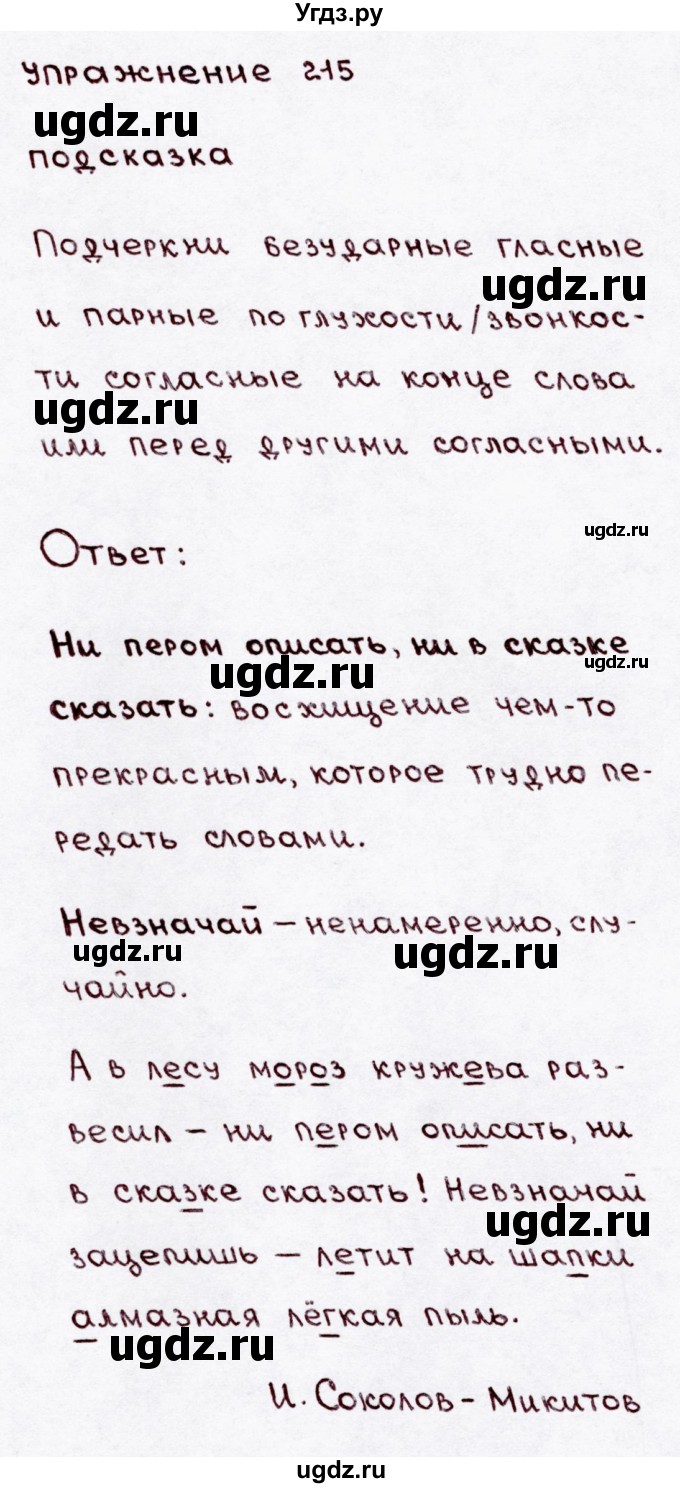 Угдз.ру
упражнение 215
ugdz.ru
подсказка
Подчеркни безударные гласные
ugdz.ru
и парные по глухости/звонкос-
ти согласные на конце слова
ugdz.ru
или перед другими согласными.
ugdz.ru
Ответ:
Ни пером описать, ни в сказке
ugdz.ru
ugdz.ru
сказать: восхищение чем-то
прекрасным, которое трудно пе-
редать словами.
Невзначай – ненамеренно, слу-
ugdz.ru
ugdz.ru
чайно.
А в лесу мороз кружева раз-
весил – ни пером описать, ни
в сказке сказать! Невзначай
ugdz.ru
зацепишь – летит на шапки
алмазная лёгкая пыль.
ugdz.ru
И. Соколов-Микитов
ugdz.ru